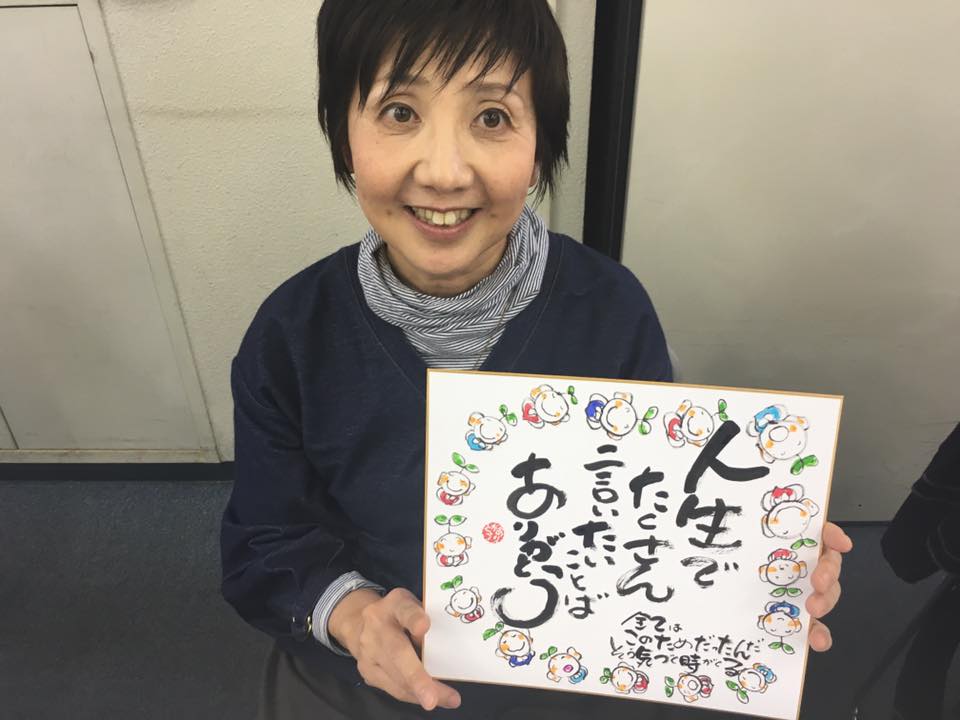 人生で
たくさん
言いたい
ことば
ありがとう
全ては
このためだったんだ
そう気づく時がくる